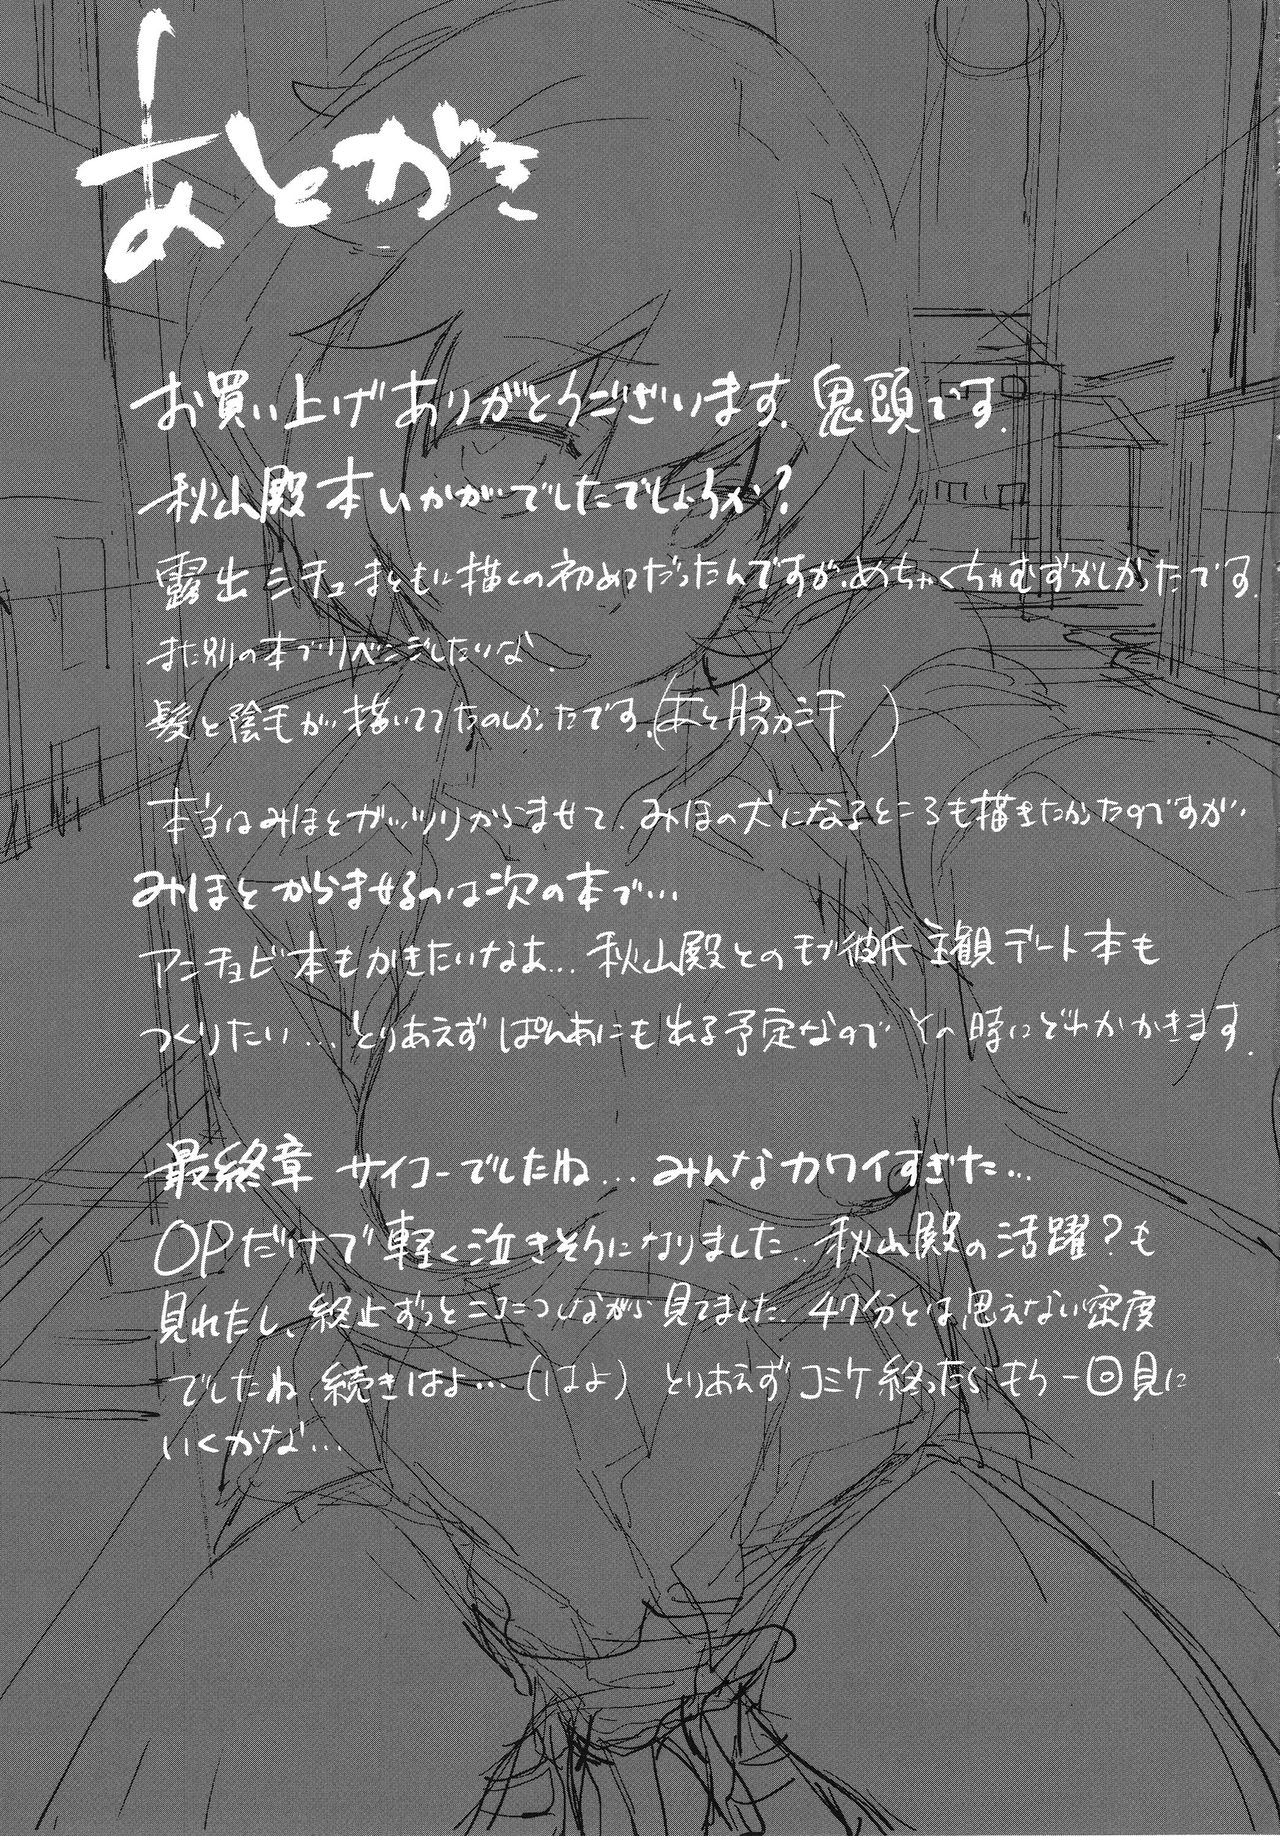 あとがき
お買い上げありがとうございます。鬼頭です。
秋山殿本いかがでしたでしょうか?
露出シチュまともに描くの初めてだったんですが、めちゃくちゃむずかしかったです。
また別の本でリベンジしたいな。
髪と陰毛が描いててたのしかったです。(あと脇カ汗 )
本当はみほとガッツリからませて、みほの犬になるところも描きたかったのですが、
みほとからませるのは次の本で…
アンチョビ本もかきたいなぁ… 秋山殿とのモブ彼氏主観デート本も
つくりたい… とりあえずぱんあにも出る予定なのでその時にどれかかきます。
最終章 サイコーでしたね… みんなカワイすぎた…
OPだけで軽く泣きそうになりました.. 秋山殿の活躍?も
見れたし、終止ずっとニコニコしながら見てました。47分とは思えない密度
でしたね。続きはよ…(はよ) とりあえずコミケ終ったらもう一回見に
いくかな…